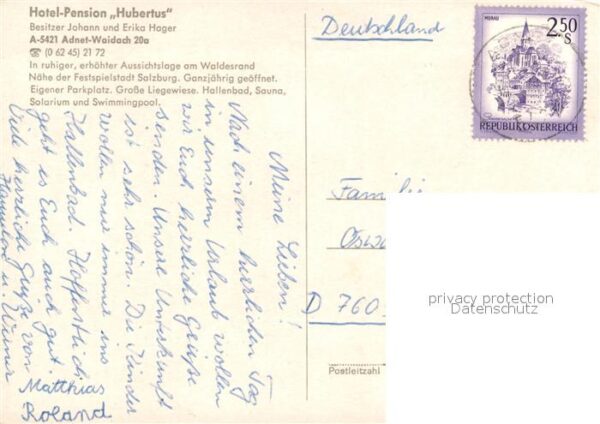 Hotel-Pension „Hubertus"
Besitzer Johann und Erika Hager
A-5421 Adnet-Waidach 20a
☎ (0 62 45) 21 72
In ruhiger, erhöhter Aussichtslage am Waldesrand
Nähe der Festspielstadt Salzburg. Ganzjährig geöffnet.
Eigener Parkplatz. Große Liegewiese. Hallenbad, Sauna,
Solarium und Swimmingpool.
Meine Lieben!
Nach einem herrlichen Tag
in unserem Urlaub wollen
wir Euch herzliche Grüße
senden. Unsere Unterkunft
ist sehr schön. Die Kinder
wollen nur immer ins
Hallenbad. Hoffentlich
geht es Euch auch gut.
Viele herzliche Grüße von
Hannelore u. Werner
Matthias
Roland
Deutschland
MURAU
2.50
S
REPUBLIK ÖSTERREICH
Familie
Oswa
D 760
Postleitzahl
privacy protection
Datenschutz